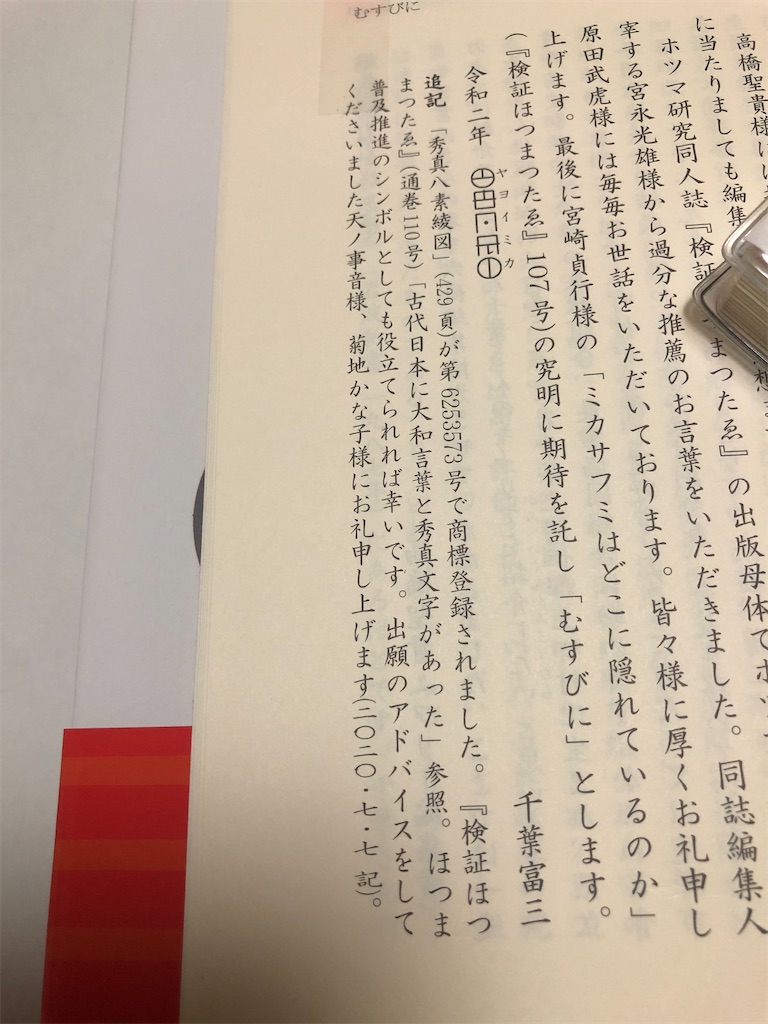 むすびに
高橋聖貴様には
に当たりましても編集
ホツマ研究同人誌『検証 つまつたゑ』の出版母体でホツ
宰する宮永光雄様から過分な推薦のお言葉をいただきました。同誌編集人
原田武虎様には毎毎お世話をいただいております。皆々様に厚くお礼申し
上げます。最後に宮崎貞行様の「ミカサフミはどこに隠れているのか」
(『検証ほつまつたゑ』107号)の究明に期待を託し「むすびに」とします。
令和二年 ヤヨイミカ
千葉富三
追記 「秀真八素綾図」(429頁)が第6253573号で商標登録されました。『検証ほつ
まつたゑ』(通巻110号)「古代日本に大和言葉と秀真文字があった」参照。ほつま
普及推進のシンボルとしても役立てられれば幸いです。出願のアドバイスをして
くださいました天ノ事音様、菊地かな子様にお礼申し上げます(二〇二〇・七・七 記)。